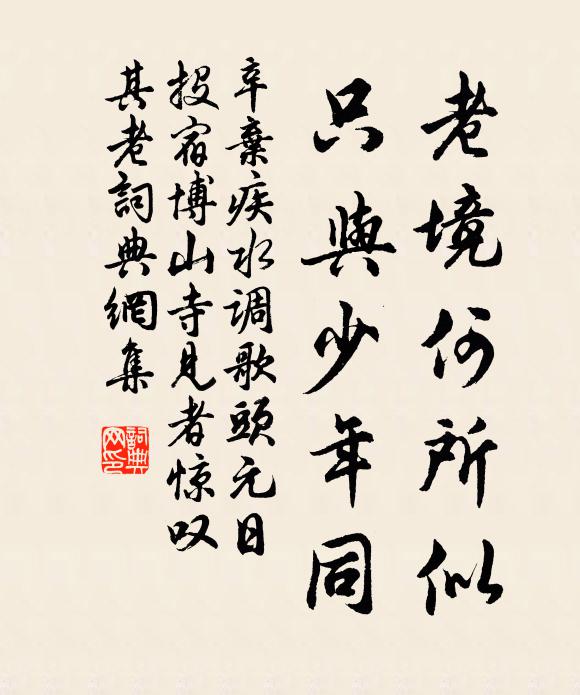 老境何所似
只與少年同
辛棄疾水调歌頭元日
投宿博山寺見者惊叹
其老詞典網集
詞典
网印